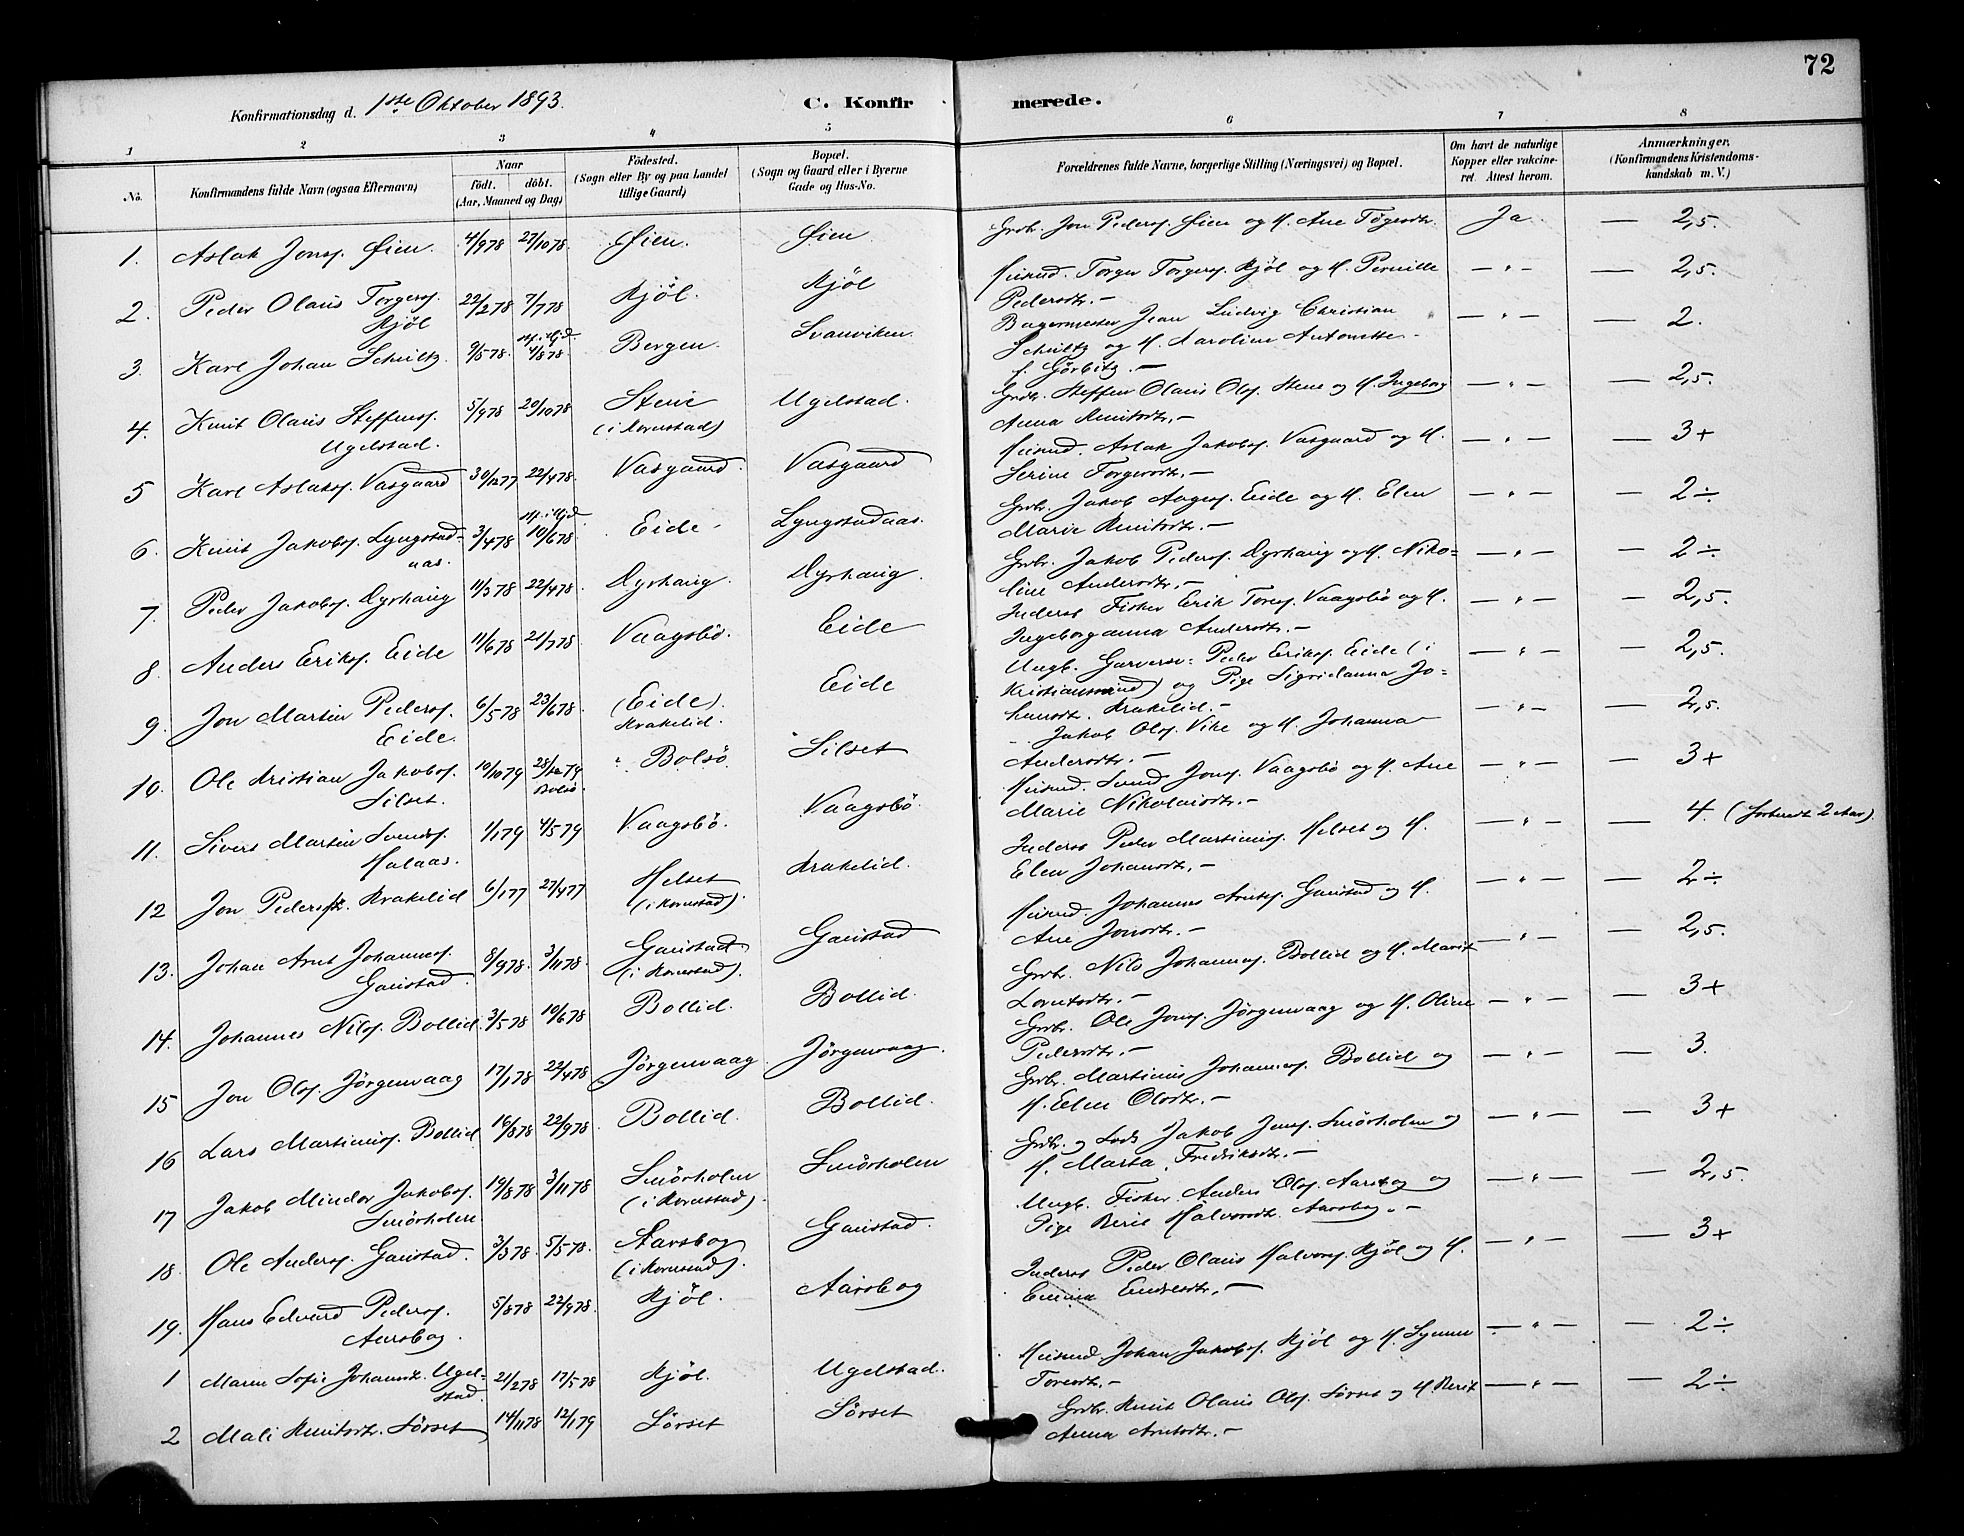 72
Konfirmationsdag d. 1ste Oktober 1893.
C. Konfirmerede.
1 2 3 4 5 6 7 8
No.
Konfirmandens fulde Navn (ogsaa Efternavn)
Naar
født. døbt.
(Aar, Maaned og Dag)
Fødested.
(Sogn eller By og paa Landet
tillige Gaard)
Bopæl.
(Sogn og Gaard eller i Byerne
Gade og Hus-No.
Forældrenes fulde Navne, borgerlige Stilling (Næringsvei) og Bopæl.
Om havt de naturlige
Kopper eller vakcine-
ret. Attest herom.
Anmærkninger.
(Konfirmandens Kristendoms-
kundskab m. V.)
1. Aslak Jonss. Øien. 4/9 78 27/10 78 Øien. Øien Grdbr. Jon Pederss. Øien og H. Ane Ja — 2,5.
2. Peder Olaus Torgerss. 22/2 78 7/7 78 Kjöl. Kjöl Huusmd. Torger Torgerss. Kjöl og H. Pernille — " — — 2,5.
Kjöl Pedersdtr. —
3. Karl Johan Schultz 9/5 78. 4/8 78 Bergen. Svanviken. Bagermester Jean Ludvig Christian — " — — 2.
Schultz og H. Karoline Antonette
f. Görbitz. —
4. Knut Olaus Steffenss. 5/9 78 20/10 78 Stene Ugelstad. Grdbr. Steffen Olaus Olss. Stene og H. Ingeborg — " — — 2,5.
Ugelstad. (i Kornstad) Anna Knutsdtr. —
5 Karl Aslakss. Vasgaard 30/12 77 22/4 78. Vasgaard. Vasgaard Huusmd. Aslak Jakobss. Vasgaard og H. — " — — 3+
Serine Torgersdtr. —
6. Knut Jakobss. Lyngstad- 3/4 78 10/6 78 Eide. Lyngstadaas. Grdbr. Jakob Aagess. Eide og H. Elen — " — — 2÷
aas. Marie Knutsdtr. —
7. Peder Jakobss. Dyrhaug 11/3 78 22/4 78. Dyrhaug. Dyrhaug. Grdbr. Jakob Pederss. Dyrhaug og H. Niko- — " — — 2÷
line Andersdtr. —
8. Anders Erikss. Eide 11/6 78 21/7 78 Vaagsbö. Eide Inderst Fisker Erik Toress. Vaagsbö og H. — " — — 2,5.
Ingeborganna Andersdtr. —
9. Jon Martin Pederss. 6/5 78 23/6 78. (Eide) Eide Ungk. Garversv. Peder Erikss. Eide (i — " — — 2,5.
Eide. Krakelid. Kristianssund) og Pige Sigridanna Jo-
hansdtr. Krakelid. —
10. Ole Kristian Jakobss. 10/10 79 28/12 79 Bolsö. Silset Jakob Olss. Vike og H. Johanna — " — — 2,5.
Silset. Bolsö. Andersdtr. —
11. Sivert Martin Svendss. 1/1 79 4/5 79 Vaagsbö. Vaagsbö. Huusmd. Svend Jonss. Vaagsbö og H. Ane — " — — 3+
Halaas. Marie Nikolaisdtr. —
12 Jon Pederss. Krakelid 6/1 77 27/4 77 Helset Krakelid. Inderst Peder Martinuss. Helset og H. — " — — 4. (forberedt 2 Aar).
(i Kornstad). Elen Johansdtr. —
13. Johan Arnt Johanness. 8/9 78. 3/11 78. Gaustad Gaustad Huusmd. Johannes Arntss. Gaustad og H. — " — — 2÷
Gaustad. (i Kornstad). Ane Jonsdtr. —
14. Johannes Nilss. Bollid. 3/5 78 10/6 78 Bollid. Bollid. Grdbr. Nils Johanness. Bollid og H. Marit — " — — 2,5.
Lorntsdtr. —
15 Jon Olss. Jörgenvaag 17/1 78 22/4 78 Jörgenvaag. Jörgenvaag. Grdbr. Ole Jonss. Jörgenvaag og H. Oline — " — — 3+
Pedersdtr. —
16 Lars Martinuss. Bollid 16/8 78 22/9 78 Bollid. Bollid. Grdbr. Martinus Johanness. Bollid og — " — — 3.
H. Elen Olsdtr. —
17 Jakob Mindor Jakobss. 19/8 78 3/11 78 Smörholm Smörholm Grdbr. og Lods Jakob Jenss. Smörholm og — " — — 3+
Smörholm (i Kornstad). H. Marta Fredriksdtr. —
18. Ole Anderss. Gaustad. 3/3 78. 5/5 78. Aarsbog Gaustad. Ungk. Fisker Anders Olss. Aarsbog og — " — — 2,5.
(i Kornstad). Pige Berit Halvorsdt. Aarsbog. —
19. Hans Edvard Pederss. 5/8 78 22/9 78. Kjöl. Aarsbog Inderst Peder Olaus Halvorss. Kjöl og H. — " — — 3+
Aarsbog. Emma Endresdtr. —
1 Maren Sofie Johansdt. Ugel- 21/2 78 17/5 78 Kjöl. Ugelstad. Huusmd. Johan Jakobss. Kjöl og H. — " — — 2÷
stad. Toresdtr. —
2 Mali Knutsdtr. Sörset 14/11 78 12/1 79 Sörset Sörset Grdbr. Knut Olaus Olss. Sörset og H. Berit — " — — 2÷
Anna Arntsdtr. —